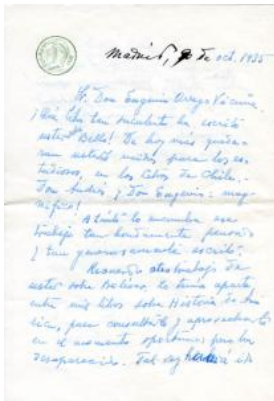 Madrid, 9 de oct. 1935
Sr. Don Eugenio Orrego Vicuña.
¡Qué libro tan excelente ha escrito
usted! Bello! De hoy más
usted unidos para los es-
tudiosos, en los libros de Chile.
Don Andrés y Don Eugenio: mag-
nífico!
A tanto lo encumbra ese
trabajo tan hondamente pensado
y tan generosamente escrito.
Recuerdo otro trabajo de
usted sobre Bolívar, lo tenía aparte
entre mis libros sobre Historia de Amé
rica, para consultarlo y aprovecharlo
en el momento oportuno; pero ha
desaparecido. Tal vez